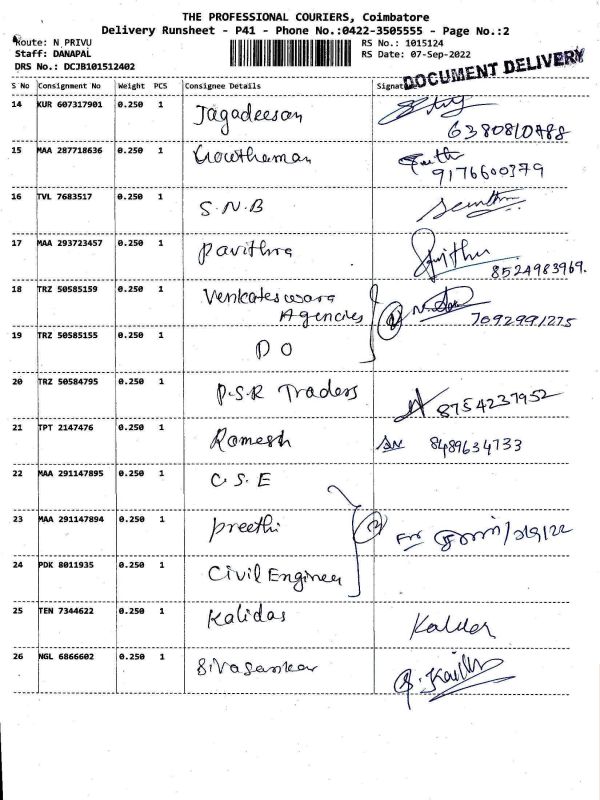 THE PROFESSIONAL COURIERS, Coimbatore
Delivery Runsheet - P41 - Phone No.:0422-3505555 - Page No.:2
Route: N PRIVU
RS No.: 1015124
Staff: DANAPAL
RS Date: 07-Sep-2022
DRS No.: DCJB101512402
DOCUMENT DELIVERY
S No Consignment No Weight PCS Consignee Details Signature
14 KUR 607317901 0.250 1 Jagadeesan
6380810788
15 MAA 287718636 0.250 1 Gowthaman
9176600379
16 TVL 7683517 0.250 1 S.N.B
17 MAA 293723457 0.250 1 Pavithra
8524983969.
18 TRZ 50585159 0.250 1 Venkateswara
Agencies 7092991275
19 TRZ 50585155 0.250 1 D O
20 TRZ 50584795 0.250 1 P.S.R Traders
8754237952
21 TPT 2147476 0.250 1 Ramesh 8489634733
22 MAA 291147895 0.250 1 C.S.E
23 MAA 291147894 0.250 1 Preethi
24 PDK 8011935 0.250 1 Civil Engineer
25 TEN 7344622 0.250 1 Kalidas
26 NGL 6866602 0.250 1 Sivasankar